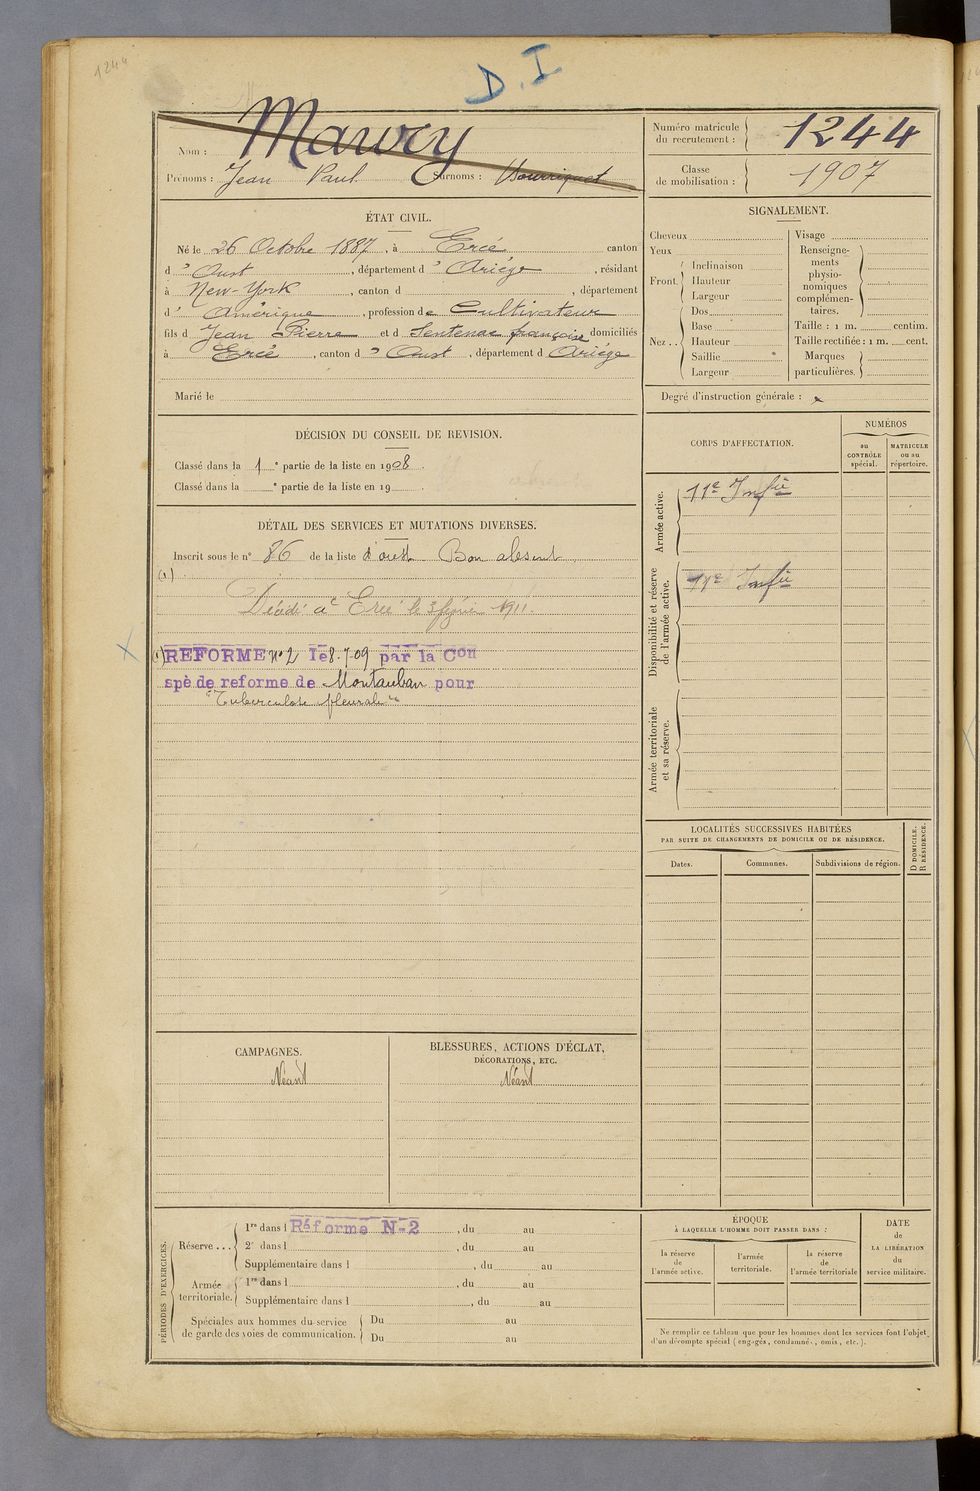 1244
D. I
Nom : Maury
Prénoms : Jean Paul Surnoms :
Numéro matricule du recrutement : 1244
Classe de mobilisation : 1907
ÉTAT CIVIL.
Né le 26 Octobre 1887, à Ercé canton
d' Oust, département d' Ariége, résidant
à New-York, canton d , département
d' Amérique, profession de Cultivateur
fils d Jean Pierre et d Sentenac françoise domiciliés
à Ercé, canton d' Oust, département d Ariége
Marié le
SIGNALEMENT.
Cheveux
Yeux
Front. Inclinaison
Hauteur
Largeur
Nez .. Dos
Base
Hauteur
Saillie
Largeur
Visage
Renseigne-
ments
physio-
nomiques
complémen-
taires.
Taille : 1 m. centim.
Taille rectifiée : 1 m. cent.
Marques
particulières.
Degré d'instruction générale : x
DÉCISION DU CONSEIL DE REVISION.
Classé dans la 1 e partie de la liste en 1908.
Classé dans la e partie de la liste en 19
DÉTAIL DES SERVICES ET MUTATIONS DIVERSES.
Inscrit sous le n° 86 de la liste d'oust Bon absent
(1)
Décédé à Ercé le 3 1911
(1) REFORME N° 2 le 8-7-09 par la Con
spè de reforme de Montauban pour
"Tuberculose pleurale"
CORPS D'AFFECTATION.
NUMÉROS
au
CONTRÔLE
spécial.
MATRICULE
ou au
répertoire.
Armée active.
11e Infie
Disponibilité et réserve
de l'armée active.
11e Infie
Armée territoriale
et sa réserve.
LOCALITÉS SUCCESSIVES HABITÉES
PAR SUITE DE CHANGEMENTS DE DOMICILE OU DE RÉSIDENCE.
D DOMICILE.
R RÉSIDENCE.
Dates.
Communes.
Subdivisions de région.
CAMPAGNES.
Néant
BLESSURES, ACTIONS D'ÉCLAT,
DÉCORATIONS, ETC.
Néant
PÉRIODES D'EXERCICES.
Réserve ... 1re dans l Réforme N-2, du au
2e dans l , du au
Supplémentaire dans l , du au
Armée territoriale. 1re dans l , du au
Supplémentaire dans l , du au
Spéciales aux hommes du service
de garde des voies de communication.
Du au
Du au
ÉPOQUE
À LAQUELLE L'HOMME DOIT PASSER DANS :
la réserve
de
l'armée active.
l'armée
territoriale.
la réserve
de
l'armée territoriale
DATE
de
LA LIBÉRATION
du
service militaire.
Ne remplir ce tableau que pour les hommes dont les services font l'objet
d'un décompte spécial (engagés, condamnés, omis, etc.).